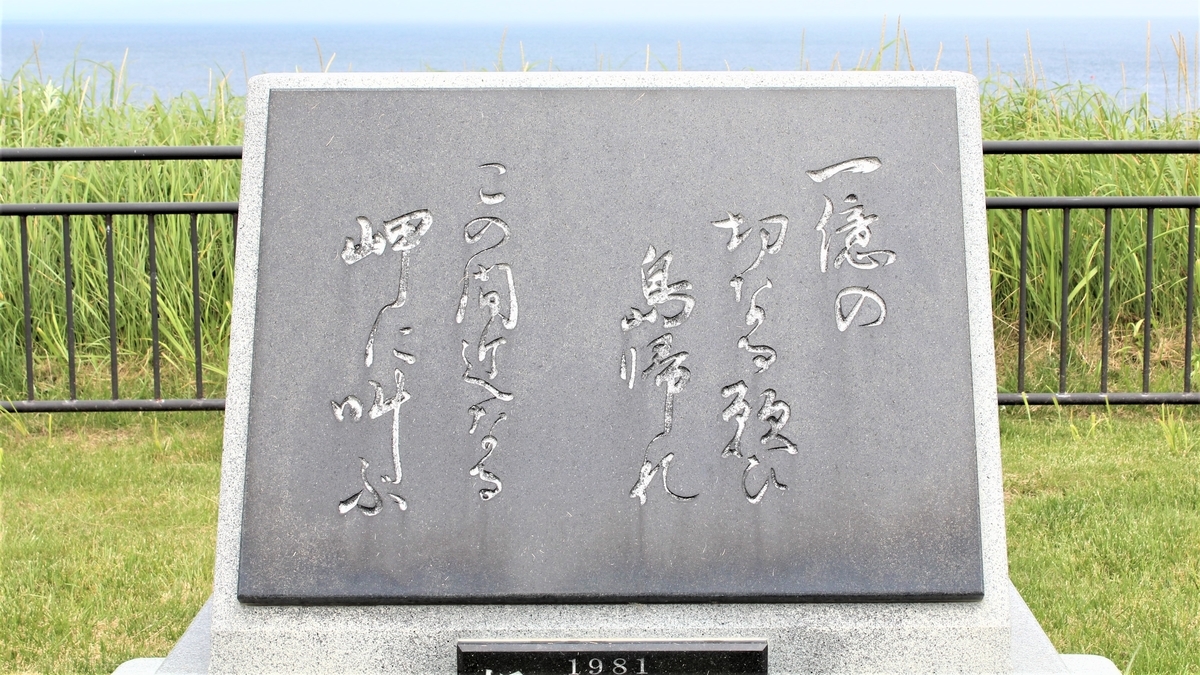 一億の
切なる願ひ
島帰れ
この間近なる
岬に叫ぶ
1981